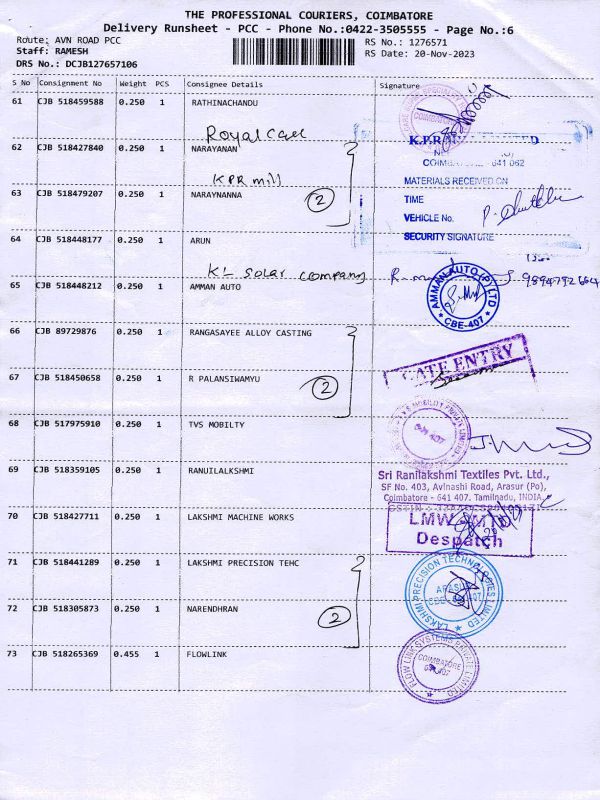 THE PROFESSIONAL COURIERS, COIMBATORE
Delivery Runsheet - PCC - Phone No.:0422-3505555 - Page No.:6
Route: AVN ROAD PCC
Staff: RAMESH
DRS No.: DCJB127657106
RS No.: 1276571
RS Date: 20-Nov-2023
S No Consignment No Weight PCS Consignee Details Signature
61 CJB 518459588 0.250 1 RATHINACHANDU
Royal Care
COIMBATORE
62 CJB 518427840 0.250 1 NARAYANAN
KPR mill
63 CJB 518479207 0.250 1 NARAYNANNA
2
K.P.R
641 062
MATERIALS RECEIVED ON
TIME
VEHICLE No.
SECURITY SIGNATURE
64 CJB 518448177 0.250 1 ARUN
KL Solar company
9894792664
65 CJB 518448212 0.250 1 AMMAN AUTO
AMMAN AUTO (P) LTD
CBE-407
66 CJB 89729876 0.250 1 RANGASAYEE ALLOY CASTING
67 CJB 518450658 0.250 1 R PALANSIWAMYU
2
GATE ENTRY
68 CJB 517975910 0.250 1 TVS MOBILTY
69 CJB 518359105 0.250 1 RANUILALKSHMI
Sri Ranilakshmi Textiles Pvt. Ltd.,
SF No. 403, Avinashi Road, Arasur (Po),
Coimbatore - 641 407. Tamilnadu, INDIA.
70 CJB 518427711 0.250 1 LAKSHMI MACHINE WORKS
LMW
Despatch
71 CJB 518441289 0.250 1 LAKSHMI PRECISION TEHC
72 CJB 518305873 0.250 1 NARENDHRAN
2
LAKSHMI PRECISION TECHNOLOGIES LIMITED
73 CJB 518265369 0.455 1 FLOWLINK
FLOW LINK SYSTEMS PRIVATE LIMITED
COIMBATORE